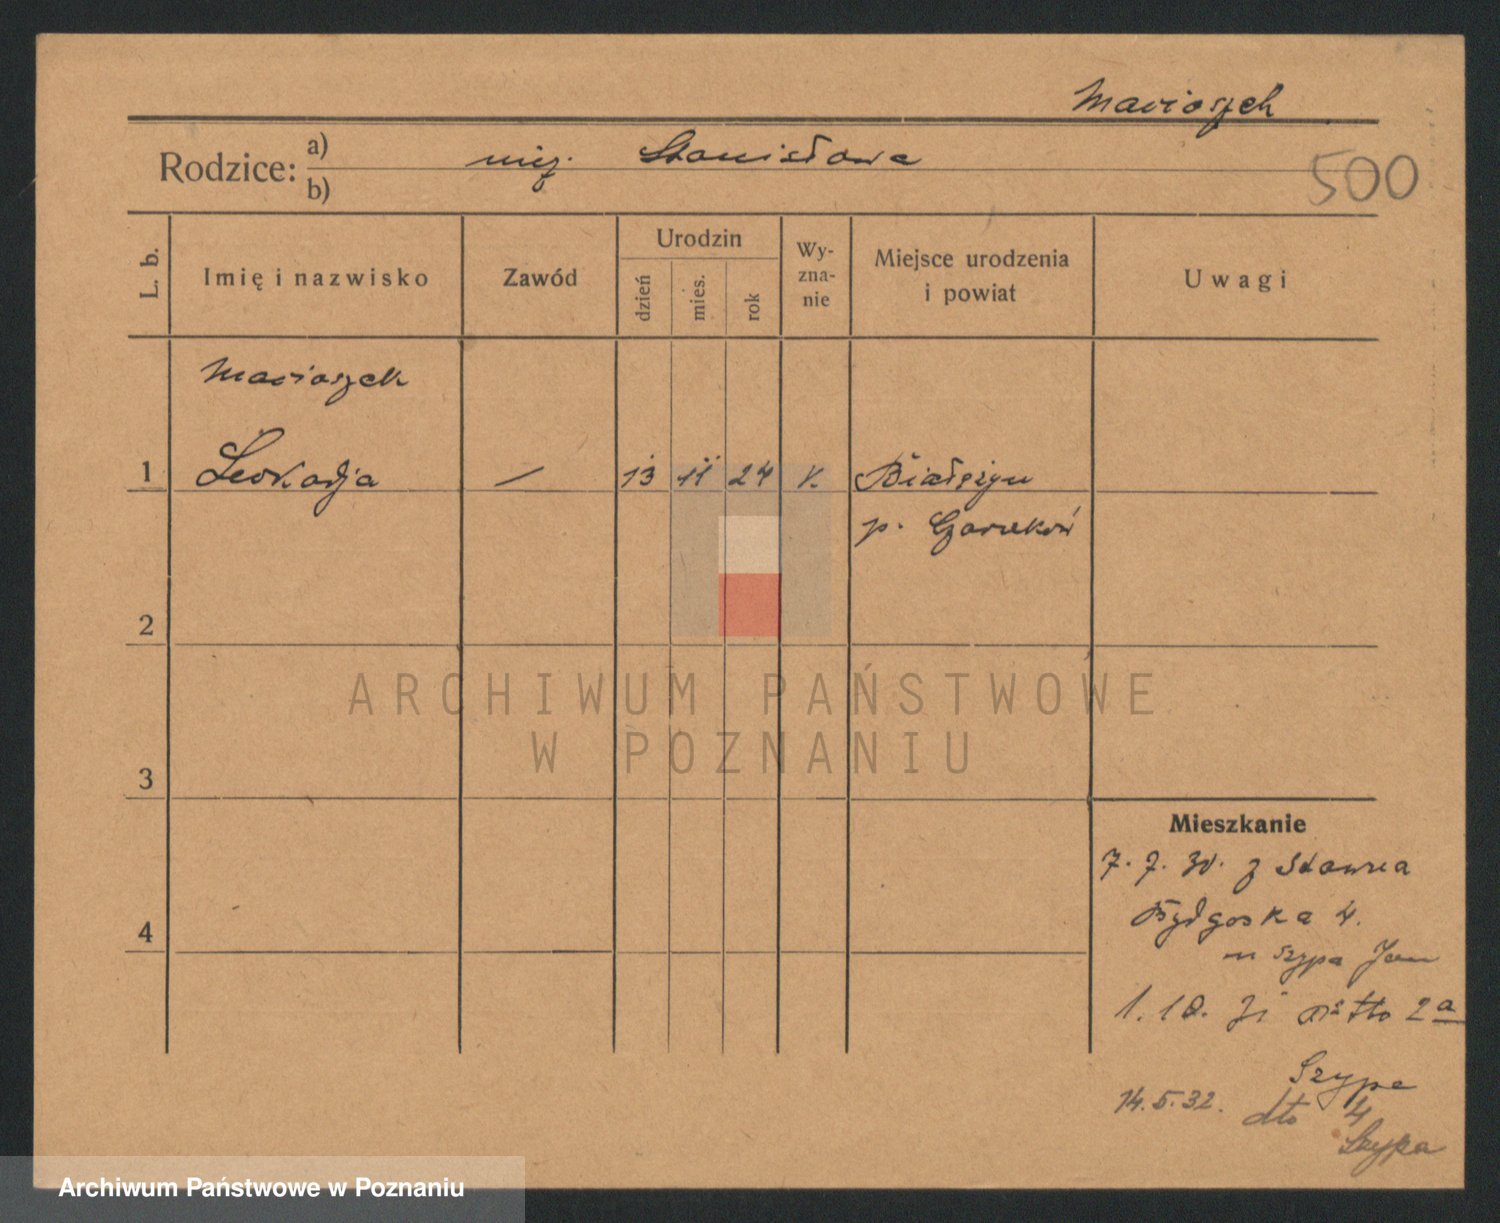 Macioszek
Rodzice: a) niez. Stanisława
b)
500
L. b. Imię i nazwisko Zawód Urodzin dzień mies. rok Wy-zna-nie Miejsce urodzenia i powiat Uwagi
Macioszek
1 Leokadja — 13 11 24 k. Białężyn
p. Czarnków
2
ARCHIWUM PAŃSTWOWE
W POZNANIU
3
Mieszkanie
7. 7. 30. z
4 Bydgoska 4.
u Szypa Jan
1. 10. 31 dtto 2a
Szypa
14.5.32. dto 4
Szypa
Archiwum Państwowe w Poznaniu